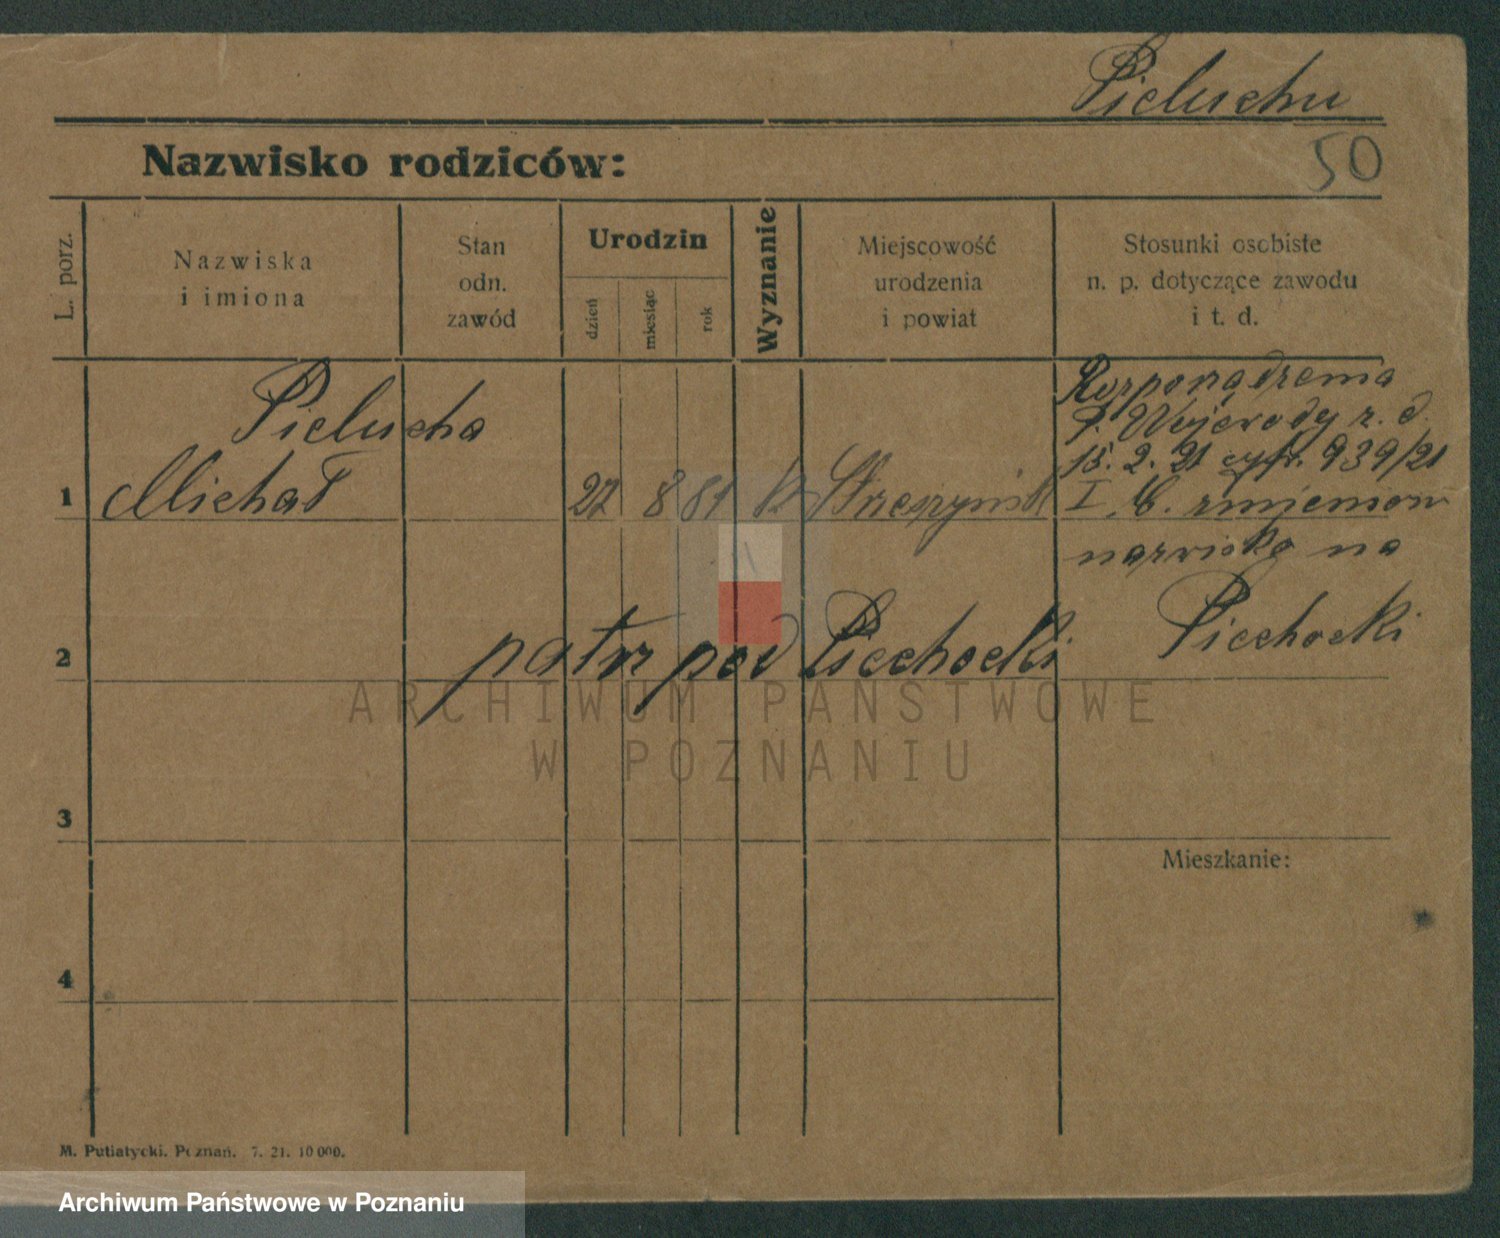 Pieluchu
50
Nazwisko rodziców:
L. porz.
Nazwiska
i imiona
Stan
odn.
zawód
Urodzin
dzień
miesiąc
rok
Wyznanie
Miejscowość
urodzenia
i powiat
Stosunki osobiste
n. p. dotyczące zawodu
i t. d.
Pielucha
1 Michał 27 8 81 k
Rozporządzenia
P. Wojewody z. d.
18. 2. 21 939/21
I. C. zmieniono
nazwisko na
Piechocki
2 patrz pod Piechocki
ARCHIWUM PAŃSTWOWE
W POZNANIU
3
Mieszkanie:
4
M. Putiatycki. Poznań. 7. 21. 10 000.
Archiwum Państwowe w Poznaniu